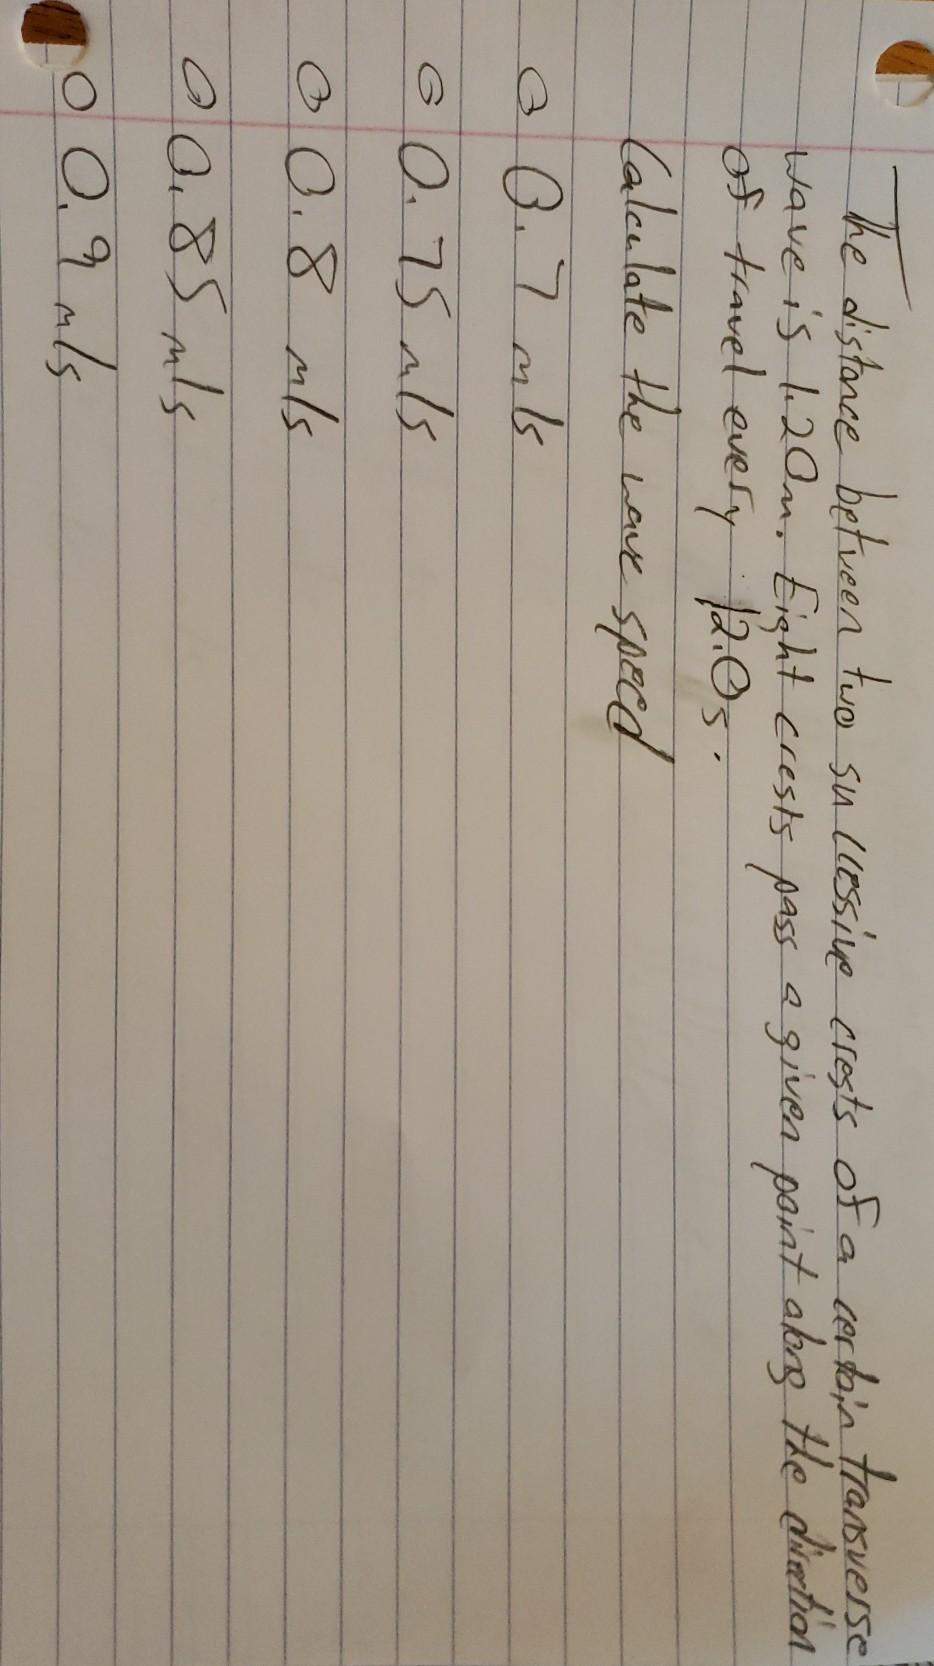 The distance between two successive crests of a certain transverse
wave is 1.20m. Eight crests pass a given point along the direction
of travel every 12.0s.
Calculate the wave speed
0.7 m/s
0.75 m/s
0.8 m/s
0.85 m/s
0.9 m/s